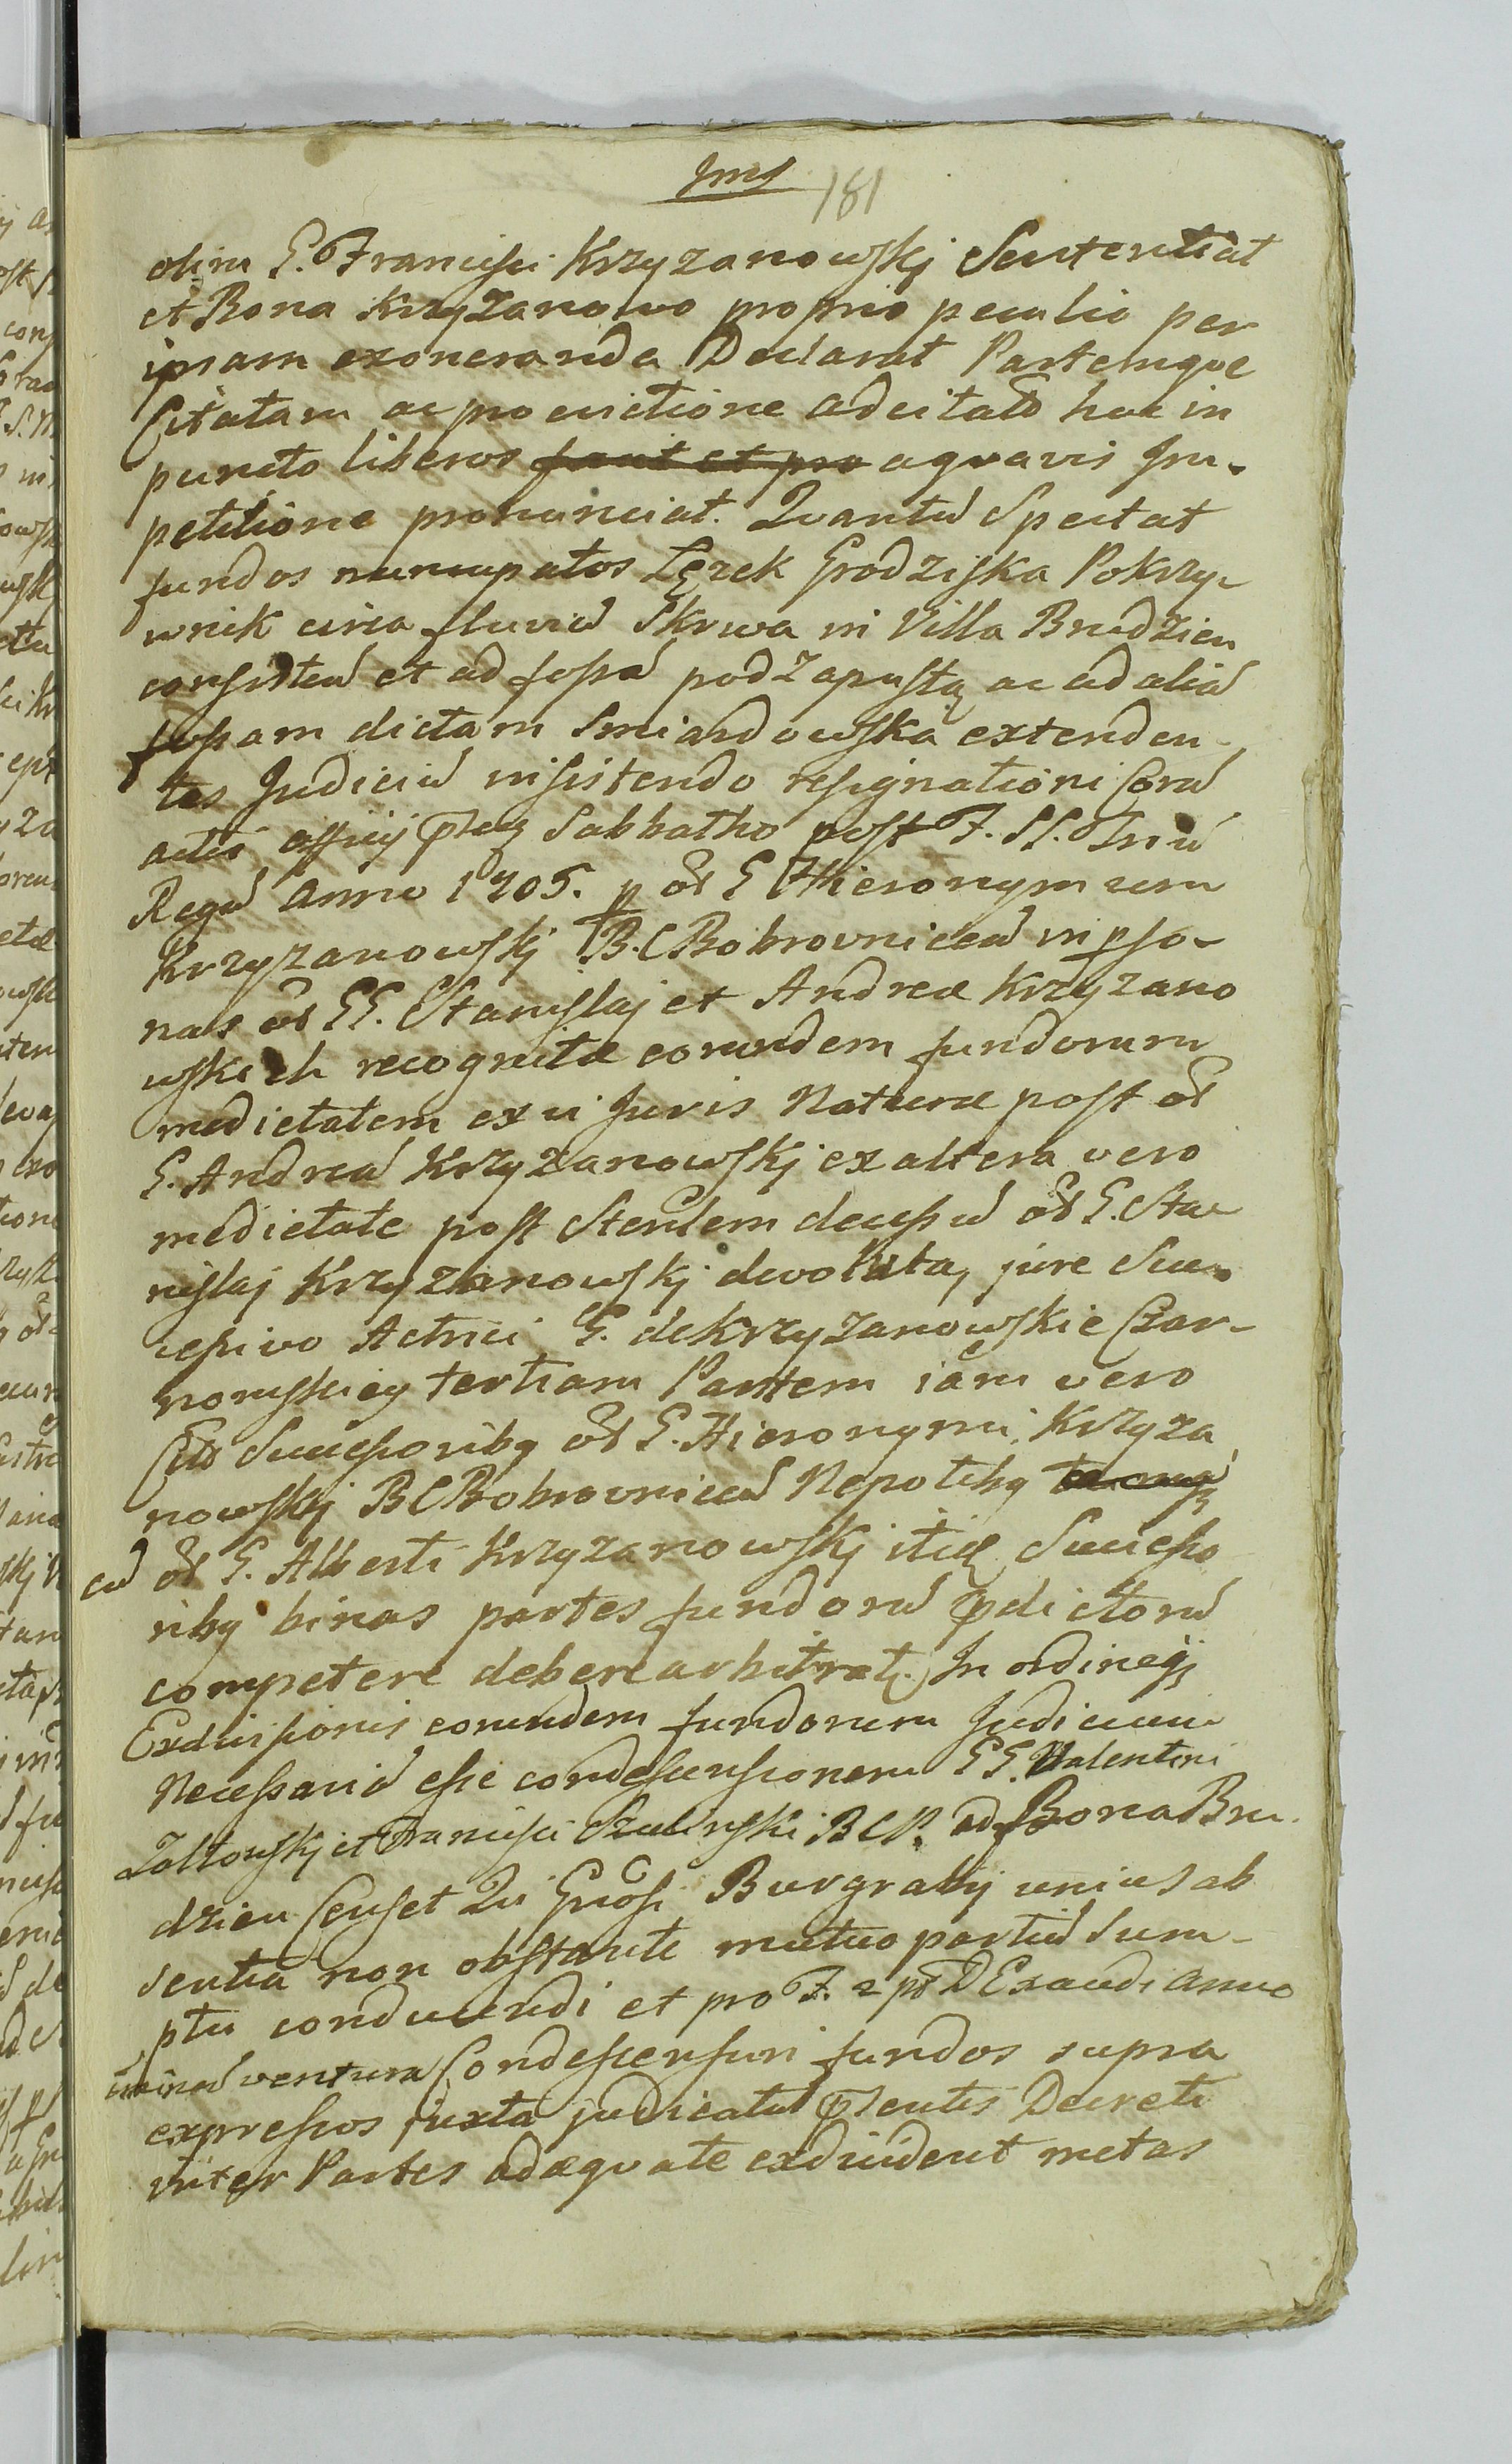 181
olim G. Francisci Krzyzanowskj Sententiat
et Bona Krzyzanowo proprio peculio per
ipsam exoneranda Declarat Partemque
Citatam ac pro evictione adcitatō hac in
puncto liberos aquavis Im-
petitione pronunciat. Quantū Spectat
fundos nuncupatos Łęzek Grodziska Pokrzy-
wnik circa fluviū Skrwa in Villa Brudzien
consisteñ et ad fossā pod Zapustą ac ad aliā
fossam dictam Smiardowska extenden-
tes Judiciū insistendo resignationi Corā
actis officij Sabbatho post F. SS. Triū
Regū Anno 1705. p ol G Hieronymum
Krzyzanowskj B. C Bobrovniceñ in pso-
nas ol GG. Stanislaj et Andreæ Krzyzano
wskich recognitæ eorundem fundorum
medietatem ex vi Juris Naturæ post ol
G. Andreā Krzyzanowskj ex altera vero
medietate post Sterilem decessū ol G. Sta-
nislaj Krzyzanowskj devoluta, jure Suc-
cessivo Actrici G. de Krzyzanowskie Czar-
nomskiey tertiam Partem iam vero
Citō Successoribq ol G. Hieronymi Krzyza
nowskj B C Bobrovniceñ Nepotibq
cū ol G. Alberti Krzyzanowskj itid Successo
ribq binas partes fundorū pdictorū
competere debere arbitrat. In ordineqz
Exdivisionis eorundem fundorum Judicium
Necessariā esse condescensionem GG. Valentini
Zołtowskj et Francisci B C P. ad Bona Bru
dzien Censet Qui Gnosi Burgrabij unius ab
sentia non obstante mutuo partiū Sum-
ptu conducendi et pro F. 2 pt D Exaudi anno
ventura Condescensuri fundos supra
expressos juxta judicatū pntis Decreti
inter Partes adæquate exdivident metas